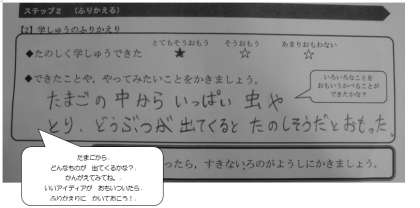 ステップ2 （ふりかえる）
【2】学しゅうのふりかえり
とてもそうおもう そうおもう あまりおもわない
◆たのしく学しゅうできた ★ ☆ ☆
◆できたことや、やってみたいことをかきましょう。
いろいろなことを
おもいうかべることが
できたかな？
たまごの中から いっぱい 虫や
とり、どうぶつが 出てくると たのしそうだとおもった。
ったら、すきないろのがようしにかきましょう。
たまごから、
どんなものが 出てくるかな？
かんがえてみてね。
いいアイディアが おもいついたら、
ふりかえりに かいておこう！